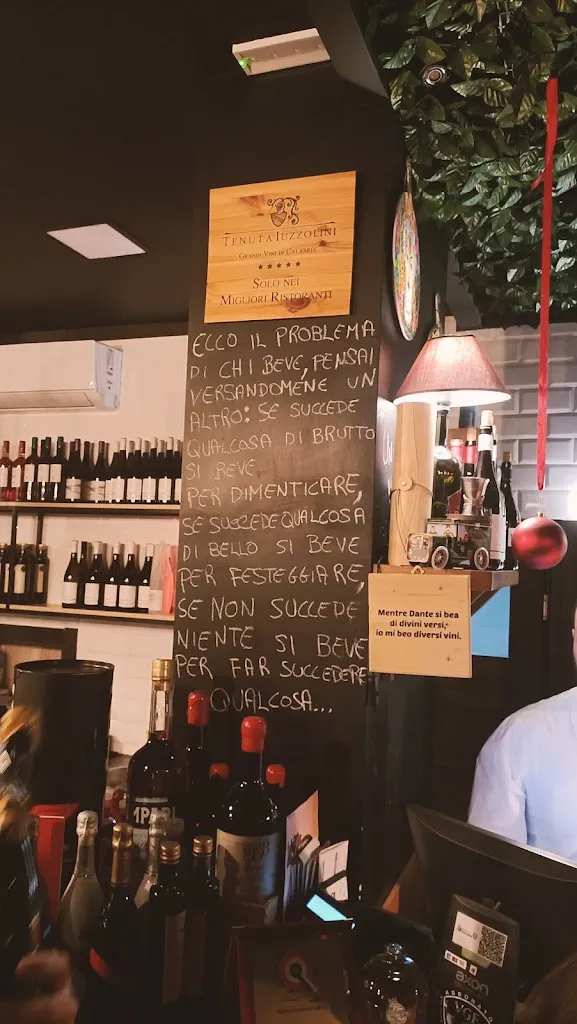 TENUTA IUZZOLINI
GRANDI VINI DI CALABRIA
SOLO NEI
MIGLIORI RISTORANTI
ECCO IL PROBLEMA
DI CHI BEVE, PENSAI
VERSANDOMENE UN
ALTRO: SE SUCCEDE
QUALCOSA DI BRUTTO
SI BEVE
PER DIMENTICARE,
SE SUCCEDE QUALCOSA
DI BELLO SI BEVE
PER FESTEGGIARE,
SE NON SUCCEDE
NIENTE SI BEVE
PER FAR SUCCEDERE
QUALCOSA...
Mentre Dante si bea
di divini versi,
io mi beo diversi vini.
axon